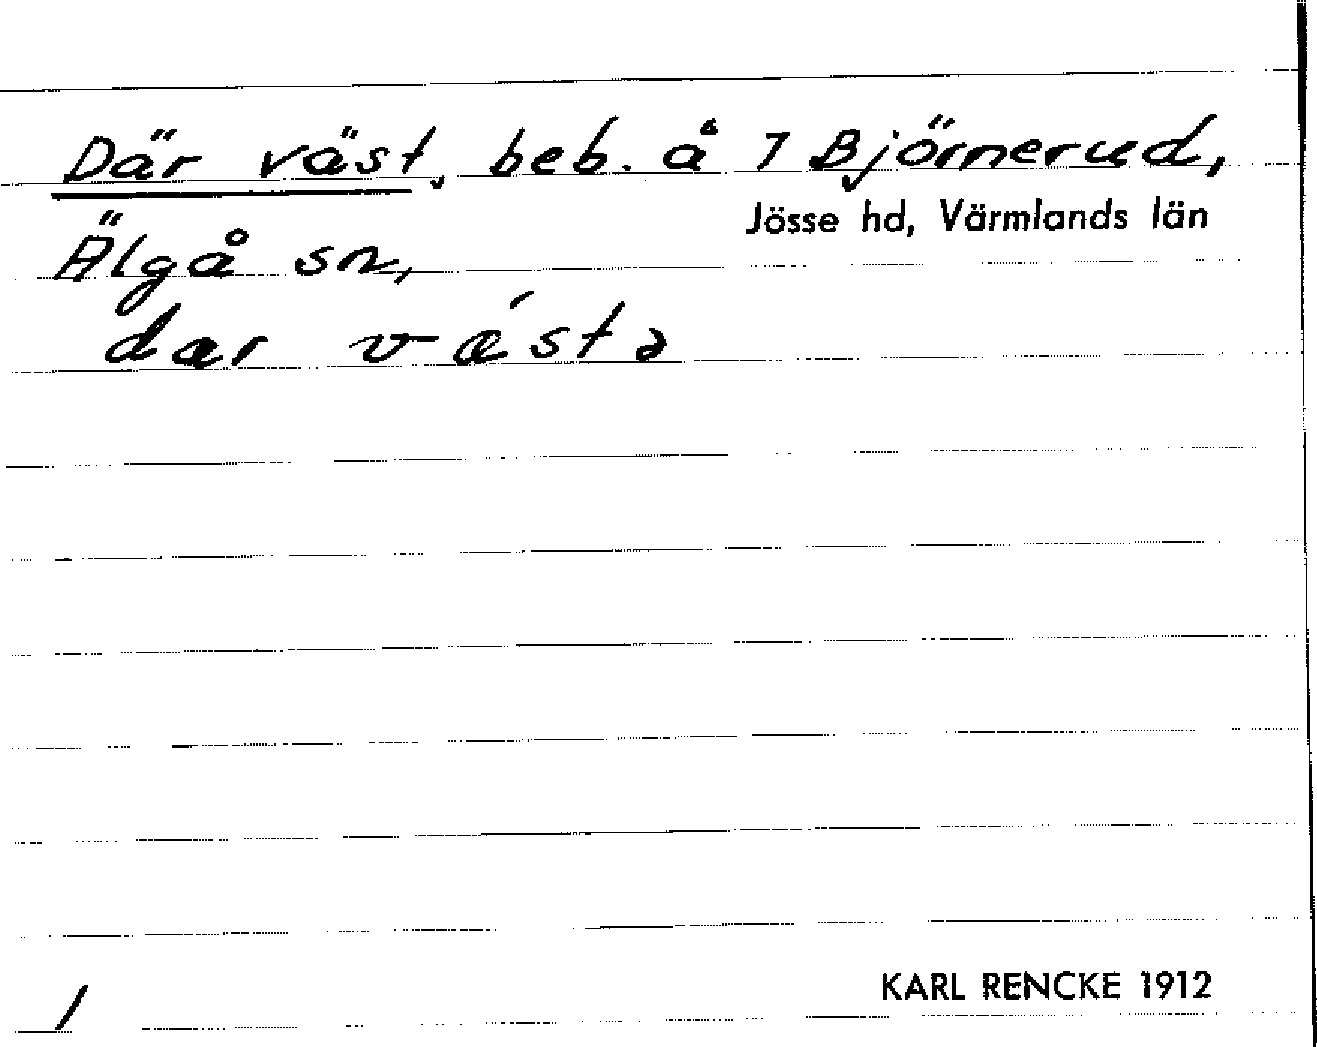 Där väst, beb. å 7 Björnerud,
Jösse hd, Värmlands län
Älgå sn,
dær væ´stə
KARL RENCKE 1912
/